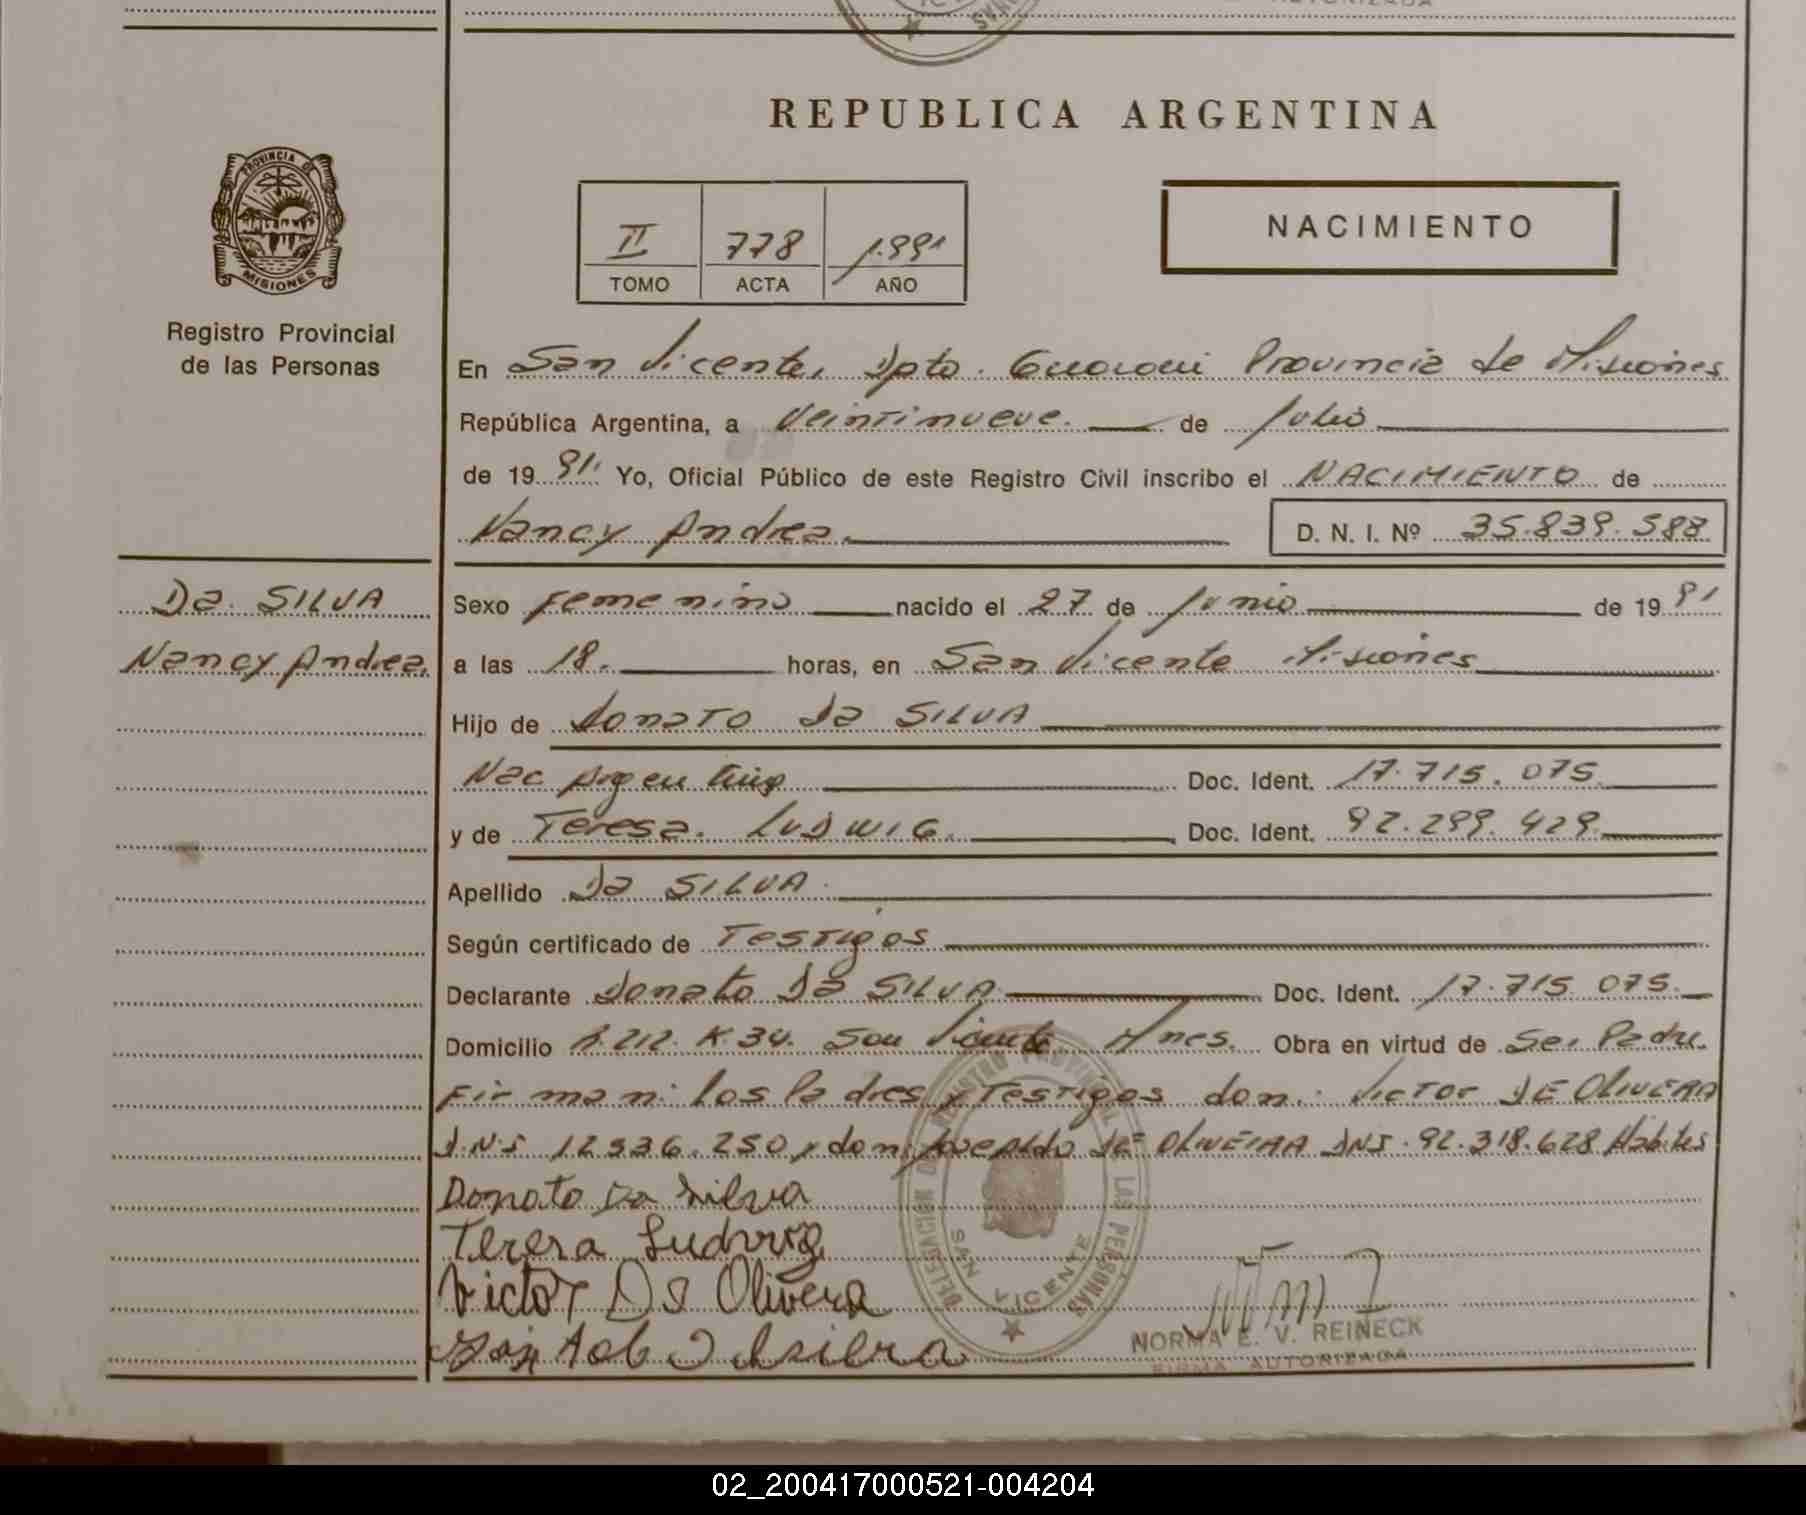 REPUBLICA ARGENTINA
PROVINCIA DE
MISIONES
Registro Provincial
de las Personas
II 778 1.991
TOMO ACTA AÑO
NACIMIENTO
En San Vicente, Dpto. Guarani Provincia de Misiones
República Argentina, a Veintinueve. de Julio
de 19 91. Yo, Oficial Público de este Registro Civil inscribo el NACIMIENTO de
Nancy Andrea. D. N. I. Nº 35.839.588
Da. SILVA
Nancy Andrea.
Sexo Femenino nacido el 27 de Junio de 19 91
a las 18. horas, en San Vicente Misiones
Hijo de Donato Da SILVA
Nac Argentina Doc. Ident. 17.715.075
y de Teresa. LUDWIG. Doc. Ident. 92.299.429.
Apellido Da SILVA.
Según certificado de Testigos
Declarante Donato Da SILVA Doc. Ident. 17.715 075.
Domicilio R.212. K.34. San Vicente Mnes. Obra en virtud de Ser Padre.
Firman: los Padres y Testigos don: Victor DE OLIVERA
D.N.I 12.936.250, y don: DE OLIVEIRA DNI. 92.318.628 Habiles
Donato Da Silva
Teresa Ludwig
Victor Ds Olivera
DELEGACION REGISTRO PROVINCIAL DE LAS PERSONAS
SAN VICENTE
NORMA E. V. REINECK
FIRMA AUTORIZADA
02_200417000521-004204